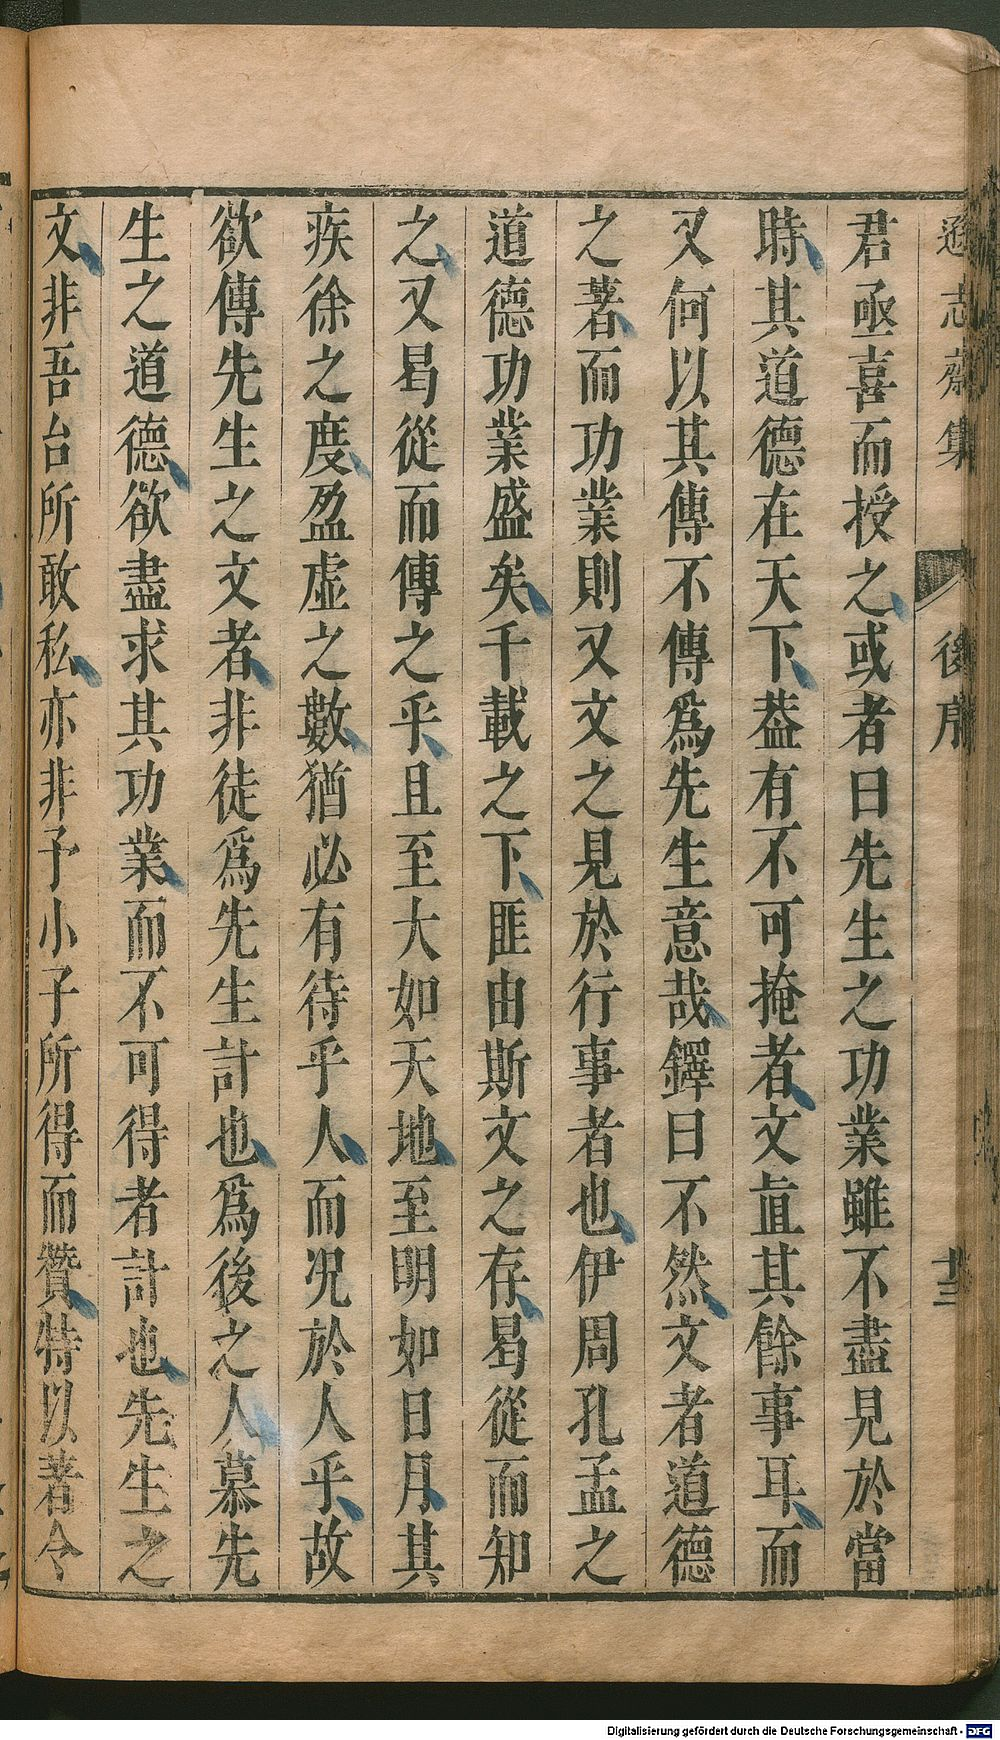 遜志齋集
後序
十三
君亟喜而授之或者曰先生之功業雖不盡見於當
時其道德在天下葢有不可掩者文直其餘事耳而
又何以其傳不傳爲先生意哉鐸曰不然文者道德
之著而功業則又文之見於行事者也伊周孔孟之
道德功業盛矣千載之下匪由斯文之存曷從而知
之又曷從而傳之乎且至大如天地至明如日月其
疾徐之度盈虛之數猶必有待乎人而况於人乎故
欲傳先生之文者非徒爲先生計也爲後之人慕先
生之道德欲盡求其功業而不可得者計也先生之
文非吾台所敢私亦非予小子所得而贊特以著令
Digitalisierung gefördert durch die Deutsche Forschungsgemeinschaft - DFG